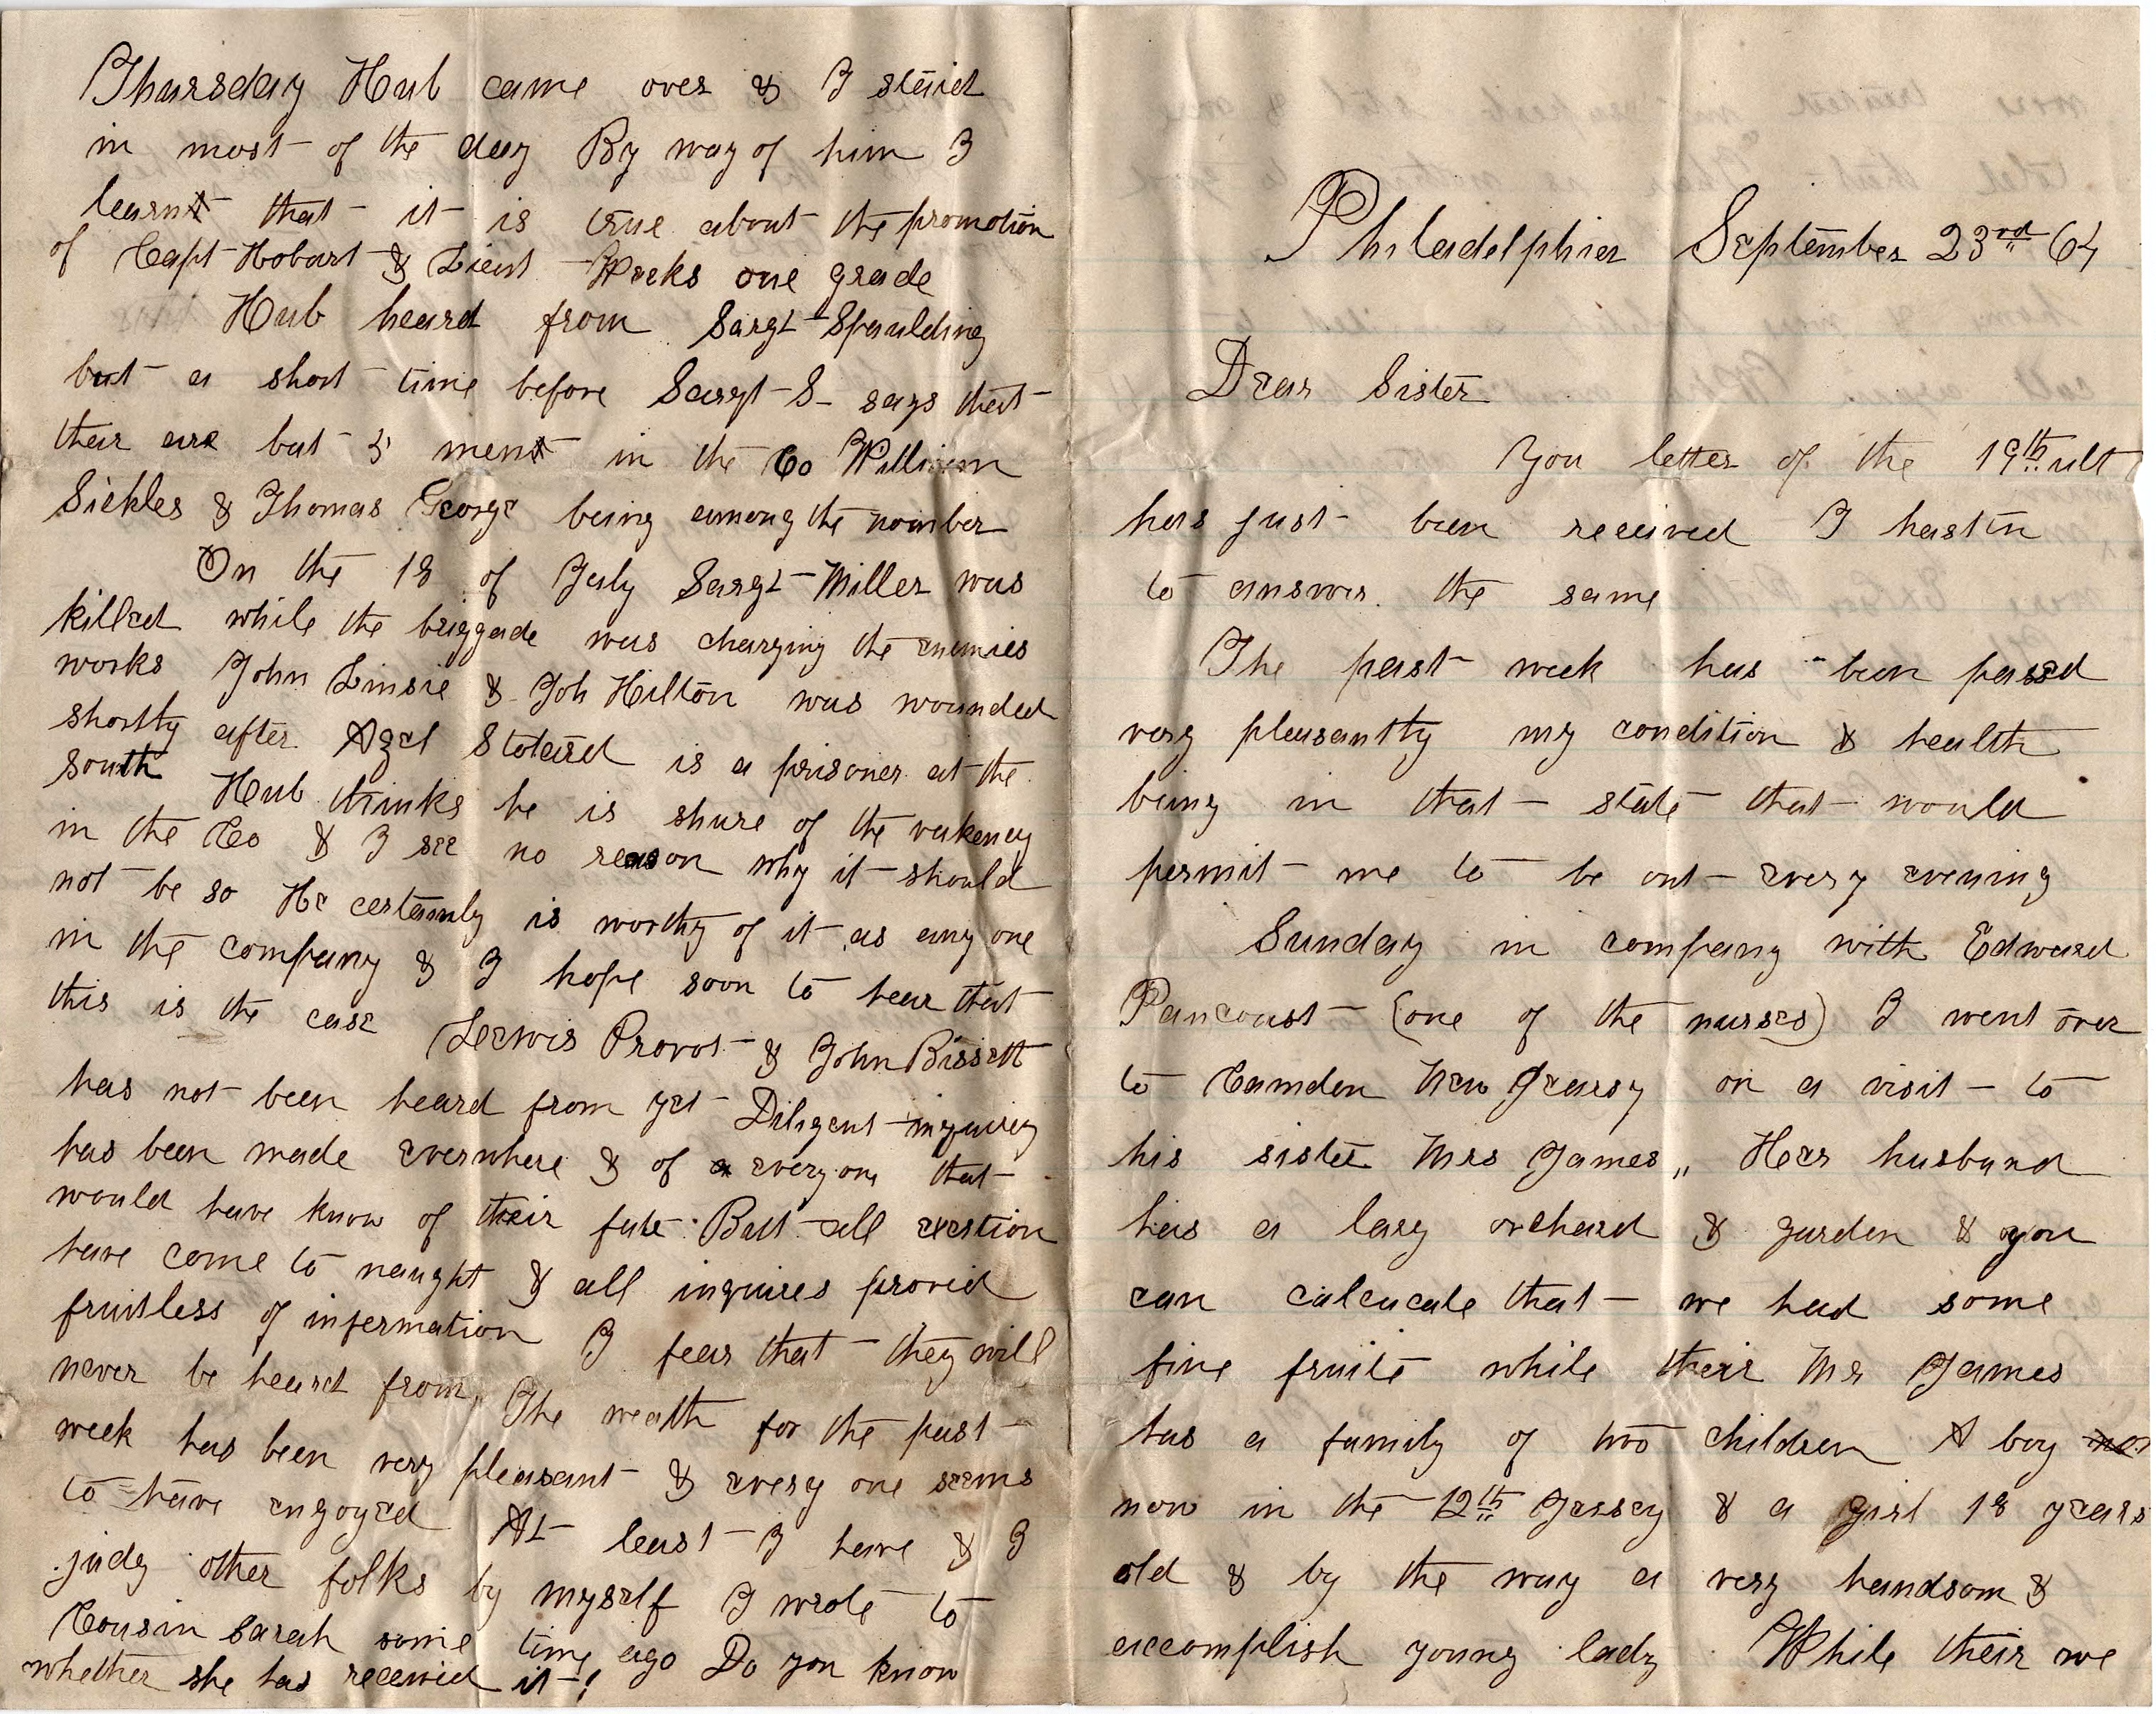 Philadelphia September 23rd 64
Dear Sister
You letter of the 19th ult
has just been received I hastin
to answer the same
The past week has been passed
very pleasantty my condition & health
being in that state that would
permit me to be out every evening
Sunday in company with Edward
Pancoast (one of the nurses) I went over
to Camden New Jearsy on a visit to
his sister Mrs James,, Hear husband
has a larg orchard & garden & you
can calcucate that we had some
fine fruite while their Mr James
has a family of two children A boy
now in the 12th Jersey & a girl 18 years
old & by the way a very handsom &
accomplish young lady While their we
Thursday Hub came over & I staid
in most of the day By way of him I
learn that it is true about the promotion
of Capt Hobart & Lieut Weeks one grade
Hub heard from Sargt Spaulding
but a short time before Sargt S- says that
thair are but 5 men in the Co William
Sickles & Thomas George being among the nomber
On the 18 of July Sargt Miller was
killed while the briggade was charging the enemies
works John Linsie & Joh Hilton was wounded
shortty after Azel Stotard is a prisoner at the
south Hub thinks he is shure of the vakency
in the Co & I see no reason why it should
not be so He certainly is worthy of it as any one
in the company & I hope soon to hear that
this is the case Lewis Provot & John Bissett
has not been heard from yet Diligent inquirey
has been made everwhere & of every one that
would have know of their fate But all exertion
have come to naught & all inquires provid
fruitless of information I fear that they will
never be heard from,, The weath for the past
week has been very pleasant & every one seems
to have engoyed At least I have & I
judg other folks by myself I wrote to
Cousin Sarah some time ago Do you know
whether she has receivid it?